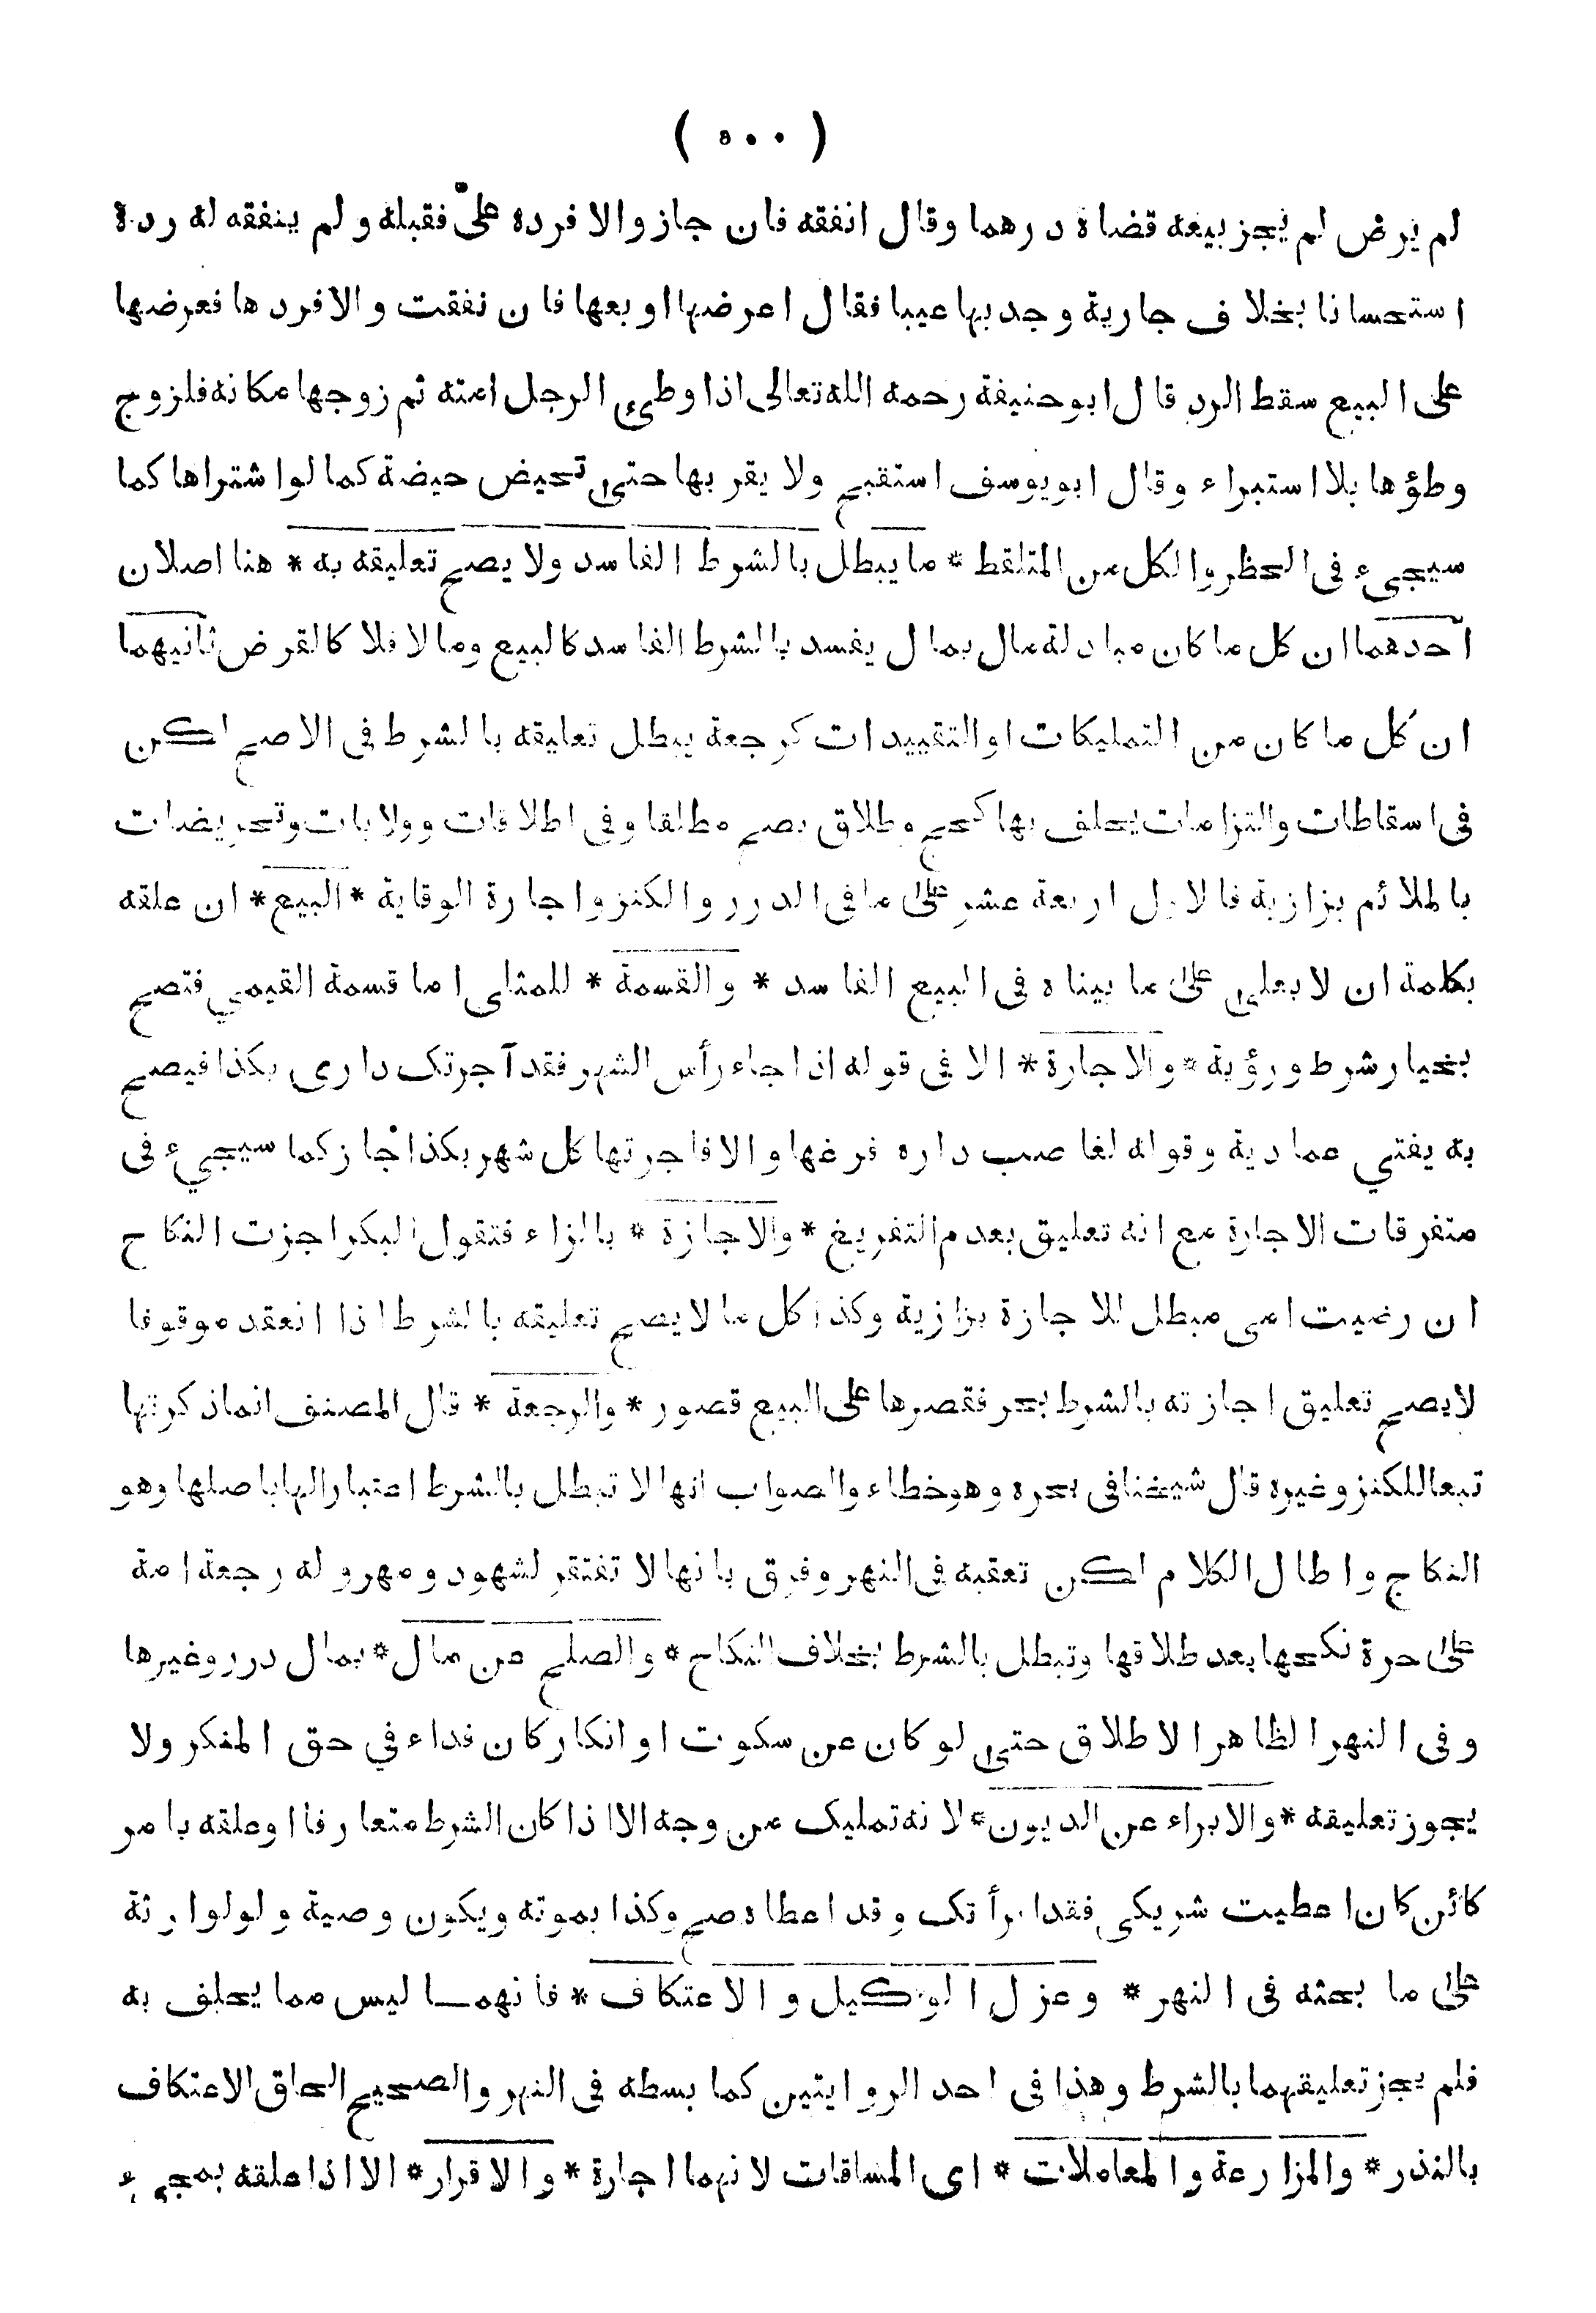 ( ٥٠٠ )
لم يرض لم يجز بيعه قضاه درهما وقال انفقه فان جاز والا فرده علىّ فقبله ولم ينفقه له رده
استحسانا بخلاف جارية وجد بها عيبا فقال اعرضها او بعها فان نفقت والا فردها فعرضها
على البيع سقط الرد قال ابو حنيفة رحمه الله تعالى اذا وطئ الرجل امته ثم زوجها مكانه فللزوج
وطؤها بلا استبراء وقال ابو يوسف استقبح ولا يقربها حتى تحيض حيضة كما لو اشتراها كما
سيجىء فى الحظر والكل من الملتقط * ما يبطل بالشرط الفاسد ولا يصح تعليقه به * هنا اصلان
احدهما ان كل ما كان مبادلة مال بمال يفسد بالشرط الفاسد كالبيع وما لا فلا كالقرض ثانيهما
ان كل ما كان من التمليكات او التقييدات كرجعة يبطل تعليقه بالشرط فى الاصح لكن
فى اسقاطات والتزامات يحلف بها كحج وطلاق يصح مطلقا وفى اطلاقات وولايات وتحريضات
بالملائم بزازية فالاول اربعة عشر على ما فى الدرر والكنز واجارة الوقاية * البيع * ان علقه
بكلمة ان لا بعلى على ما بيناه فى البيع الفاسد * والقسمة * للمثلى اما قسمة القيمي فتصح
بخيار شرط ورؤية * والاجارة * الا في قوله اذا جاء رأس الشهر فقد آجرتك دارى بكذا فيصح
به يفتي عمادية وقوله لغاصب داره فرغها والا فاجرتها كل شهر بكذا جاز كما سيجيء فى
متفرقات الاجارة مع انه تعليق بعدم التفريغ * والاجازة * بالزاء فتقول البكر اجزت النكاح
ان رضيت امى مبطل للاجازة بزازية وكذا كل ما لا يصح تعليقه بالشرط اذا انعقد موقوفا
لا يصح تعليق اجازته بالشرط بحر فقصرها على البيع قصور * والرجعة * قال المصنف انما ذكرتها
تبعا للكنز وغيره قال شيخنا فى بحره وهو خطاء والصواب انها لا تبطل بالشرط اعتبارا لها باصلها وهو
النكاح واطال الكلام لكن تعقبه فى النهر وفرق بانها لا تفتقر لشهود ومهر وله رجعة امة
على حرة نكحها بعد طلاقها وتبطل بالشرط بخلاف النكاح * والصلح عن مال * بمال درر وغيرها
وفى النهر الظاهر الاطلاق حتى لو كان عن سكوت او انكار كان فداء في حق المنكر ولا
يجوز تعليقه * والابراء عن الديون * لانه تمليك من وجه الا اذا كان الشرط متعارفا او علقه بامر
كائن كان اعطيت شريكي فقد ابرأتك وقد اعطاه صح وكذا بموته ويكون وصية ولو لوارثة
على ما بحثه فى النهر * وعزل الوكيل والاعتكاف * فانهما ليس مما يحلف به
فلم يجز تعليقهما بالشرط وهذا فى احد الروايتين كما بسطه فى النهر والصحيح الحاق الاعتكاف
بالنذر * والمزارعة والمعاملات * اى المساقات لانهما اجارة * والاقرار * الا اذا علقه بمجىء